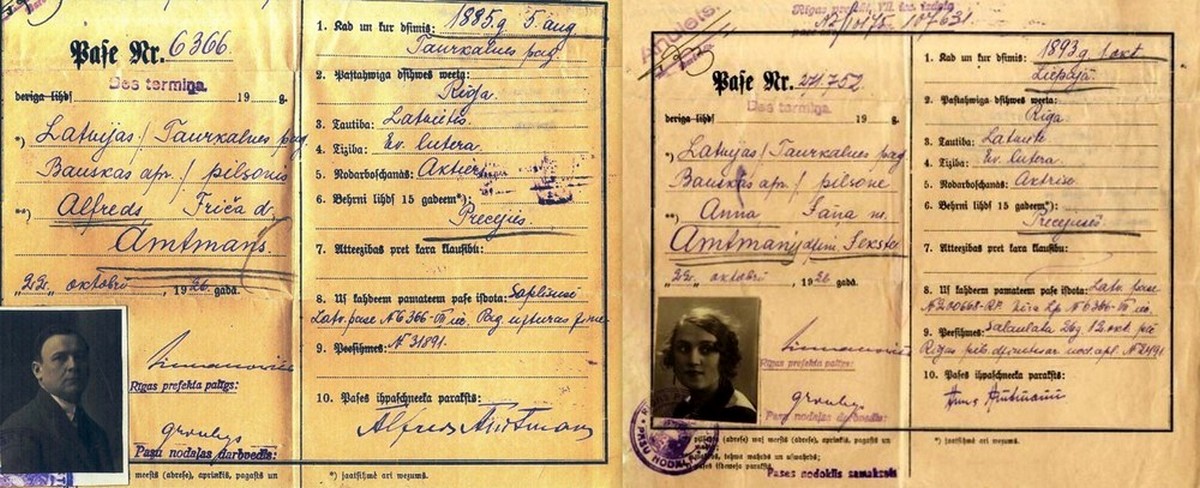 Pase Nr. 6366.
Bes termiņa.
deriga lihdſ 19 g.
*) Latvijas/ Taurkalnes pag.
Bauskas apr./ pilsonis
**) Alfreds Friča d.
Amtmans.
"22." oktobrī, 1926. gadā.
Rīgas prefekta palīgs:
Pasu nodaļas darbvedis:
meeſts (adreſe), aprinkis, pagaſts un
1. Kad un kur dſimis: 1885.g. 5. aug.
Taurkalnes pag.
2. Paſtahwiga dſihwes weeta:
Rīga.
3. Tautiba: Latvietis.
4. Tiziba: Ev. lutera.
5. Nodarboſchanàs: Aktieris
6. Behrni lihdſ 15 gadeem*):
Precējies.
7. Atteezibas pret kara klauſibu:
8. Uſ kahdeem pamateem paſe iſdota: Saplīsusē
Latv. pase N 6366
9. Peeſihmes: N 31891.
10. Paſes ihpaſchneeka parakſts:
Alfreds Amtmans
*) jaatſihmē ari wezums.
Anulēts.
Rīgas prefekt. VII. iec.
107631
Pase Nr. 271.752.
Bes termiņa.
deriga lihdſ 19 g.
*) Latvijas/ Taurkalnes pag.
Bauskas apr./ pilsone
**) Anna Jāņa m.
Amtmanis, dzim. Fekster
"22." oktobrī, 1926. gadā.
Rīgas prefekta palīgs:
Pasu nodaļas darbvedis:
PASU NODAĻ
(adreſe) waj meeſts (adreſe), aprinkis, pagaſts un
Pases nodoklis samaksāts
1. Kad un kur dſimis: 1893.g. 1. okt.
Liepājā.
2. Paſtahwiga dſihwes weeta:
Rīga.
3. Tautiba: Latviete
4. Tiziba: Ev. lutera.
5. Nodarboſchanàs: Aktrise
6. Behrni lihdſ 15 gadeem*):
Precējusēs.
7. Atteezibas pret kara klauſibu:
8. Uſ kahdeem pamateem paſe iſdota: Latv. pase
9. Peeſihmes: Salaulāta 26g. 12. okt. pie
Rīgas N 2491
10. Paſes ihpaſchneeka parakſts:
Anna Amtmann
*) jaatſihmē ari wezums.